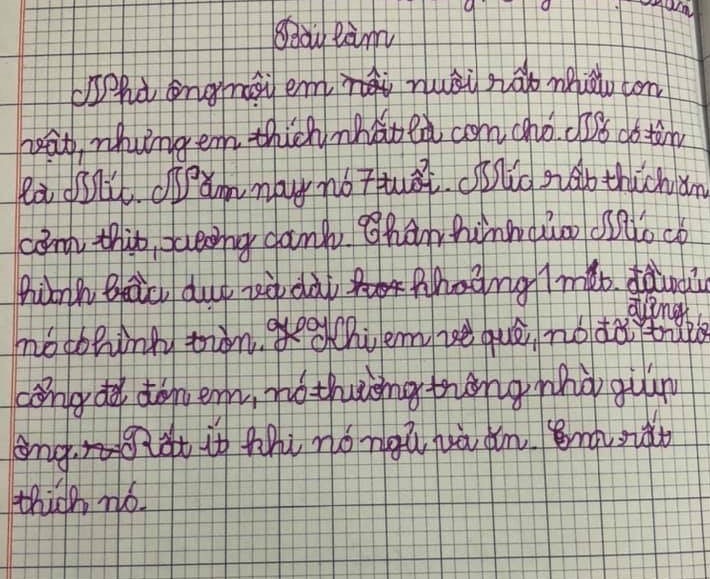 Bài làm
Nhà ông nội em nuôi rất nhiều con
vật, nhưng em thích nhất là con chó. Nó có tên
là Mic. Năm nay nó 7 tuổi. Mic rất thích ăn
cơm thịt, xương canh. Thân hình của Mic có
hình bầu dục và dài khoảng 1 mét. đầu của
nó có hình tròn. Khi em về quê, nó đã đứng trước
cổng để đón em, nó thường trông nhà giúp
ông. Rất ít khi nó ngủ và ăn. Em rất
thích nó.